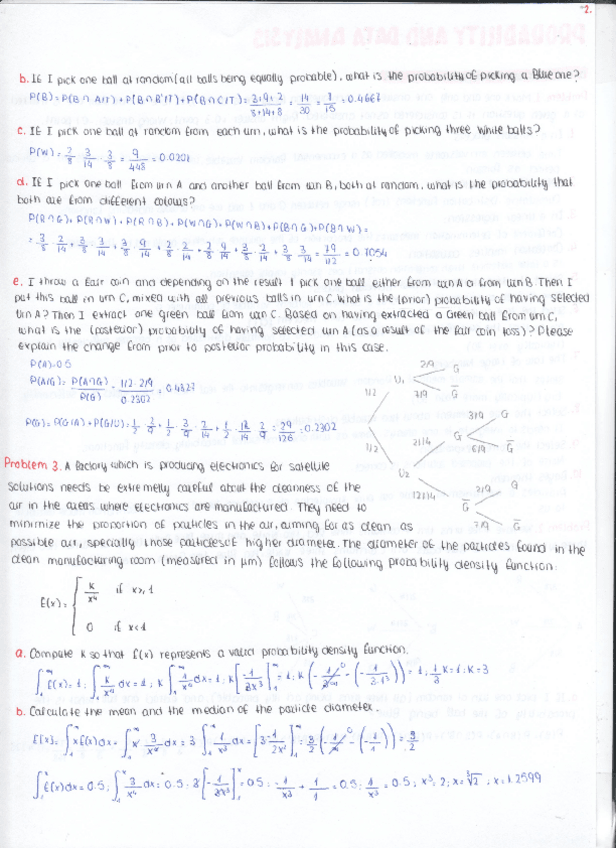 2.
b. If I pick one ball at random (all balls being equally probable), what is the probability of picking a Blue one?
P(B) = P(B ∩ A/T) + P(B ∩ B'/T) + P(B ∩ C/T) = (3+9+2)/(8+14+8) = 14/30 = 7/15 = 0.4667
c. If I pick one ball at random from each urn, what is the probability of picking three white balls?
P(W) = 2/8 · 3/14 · 3/8 = 9/448 = 0.0201
d. If I pick one ball from urn A and another ball from urn B, both at random, what is the probability that
both are from different colours?
P(R∩G) + P(R∩W) + P(R∩B) + P(W∩G) + P(W∩B) + P(B∩G) + P(B∩W) =
= 3/8 · 2/14 + 3/8 · 3/14 + 3/8 · 9/14 + 2/8 · 2/14 + 2/8 · 9/14 + 3/8 · 2/14 + 3/8 · 3/14 = 79/112 = 0.7054
e. I throw a fair coin and depending on the result I pick one ball either from urn A o from urn B. Then I
put this ball in urn C, mixed with all previous balls in urn C. What is the (prior) probability of having selected
Urn A? Then I extract one green ball from urn C. Based on having extracted a Green ball from urn C,
what is the (posterior) probability of having selected urn A (as a result of the fair coin toss)? Please
explain the change from prior to posterior probability in this case.
P(A) = 0.5
P(A/G) = P(A∩G)/P(G) = (1/2 · 2/9)/0.2302 = 0.4827
P(G) = P(G/A) + P(G/U) = 1/2 · 2/9 + 1/2 · 3/9 · 2/14 + 1/2 · 12/14 · 2/9 = 29/126 = 0.2302
1/2 U1 2/9 G
7/9 G̅
1/2 U2 2/14 G 3/9 G
6/9 G̅
12/14 G̅ 2/9 G
7/9 G̅
Problem 3. A factory which is producing electronics for satellite
solutions needs be extremelly careful about the cleanness of the
air in the areas where electronics are manufactured. They need to
minimize the proportion of particles in the air, aiming for as clean as
possible air, specially those particles of higher diameter. The diameter of the particles found in the
clean manufacturing room (measured in μm) follows the following probability density function:
f(x) = { K/x⁴ if x ≥ 1
0 if x < 1
a. Compute K so that f(x) represents a valid probability density function.
∫₁^∞ f(x) = 1; ∫₁^∞ K/x⁴ dx = 1; K ∫₁^∞ 1/x⁴ dx = 1; K [-1/3x³]₁^∞ = 1; K (-1/∞ - (-1/3·1³)) = 1; 1/3 K = 1; K = 3
b. Calculate the mean and the median of the particle diameter.
E(x) = ∫₁^∞ x f(x) dx = ∫₁^∞ x · 3/x⁴ dx = 3 ∫₁^∞ 1/x³ dx = [3 · -1/2x²]₁^∞ = 3/2 (-1/∞ - (-1/1)) = 3/2
∫₁^x f(x) dx = 0.5; ∫₁^x 3/x⁴ dx = 0.5; 3 [-1/3x³]₁^x = 0.5; -1/x³ + 1/1 = 0.5; 1/x³ = 0.5; x³ = 2; x = ∛2; x = 1.2599